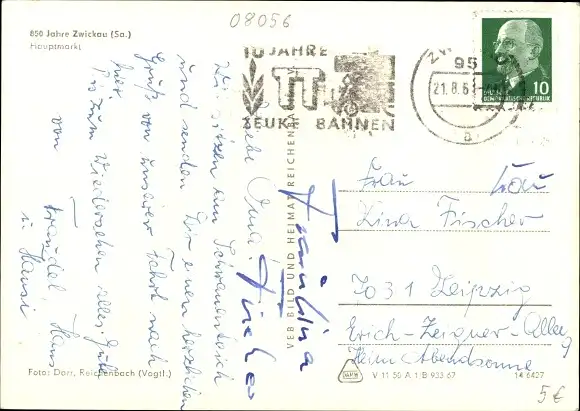 08056
850 Jahre Zwickau (Sa.)
Hauptmarkt
10 JAHRE
TT
ZEUKE BAHNEN
95
21.8.6
a
10
DEUTSCHE DEMOKRATISCHE REPUBLIK
Liebe Oma!
Wir sitzen am Schwanenteich
und senden Dir einen herzlichen
Gruß von unserer Fahrt nach
hier.
Bis zum Wiedersehen alles Gute
von Traudel, Hans
u. Hansi
VEB BILD UND HEIMAT REICHENBACH I. V.
Frau
Lina
Fischer
Frau Frau
Lina Fischer
7031 Leipzig
Erich-Zeigner-Allee
Heim Abendsonne
Foto: Darr, Reichenbach (Vogtl.)
V 11 50 A 1/B 933 67
14 6427
5€